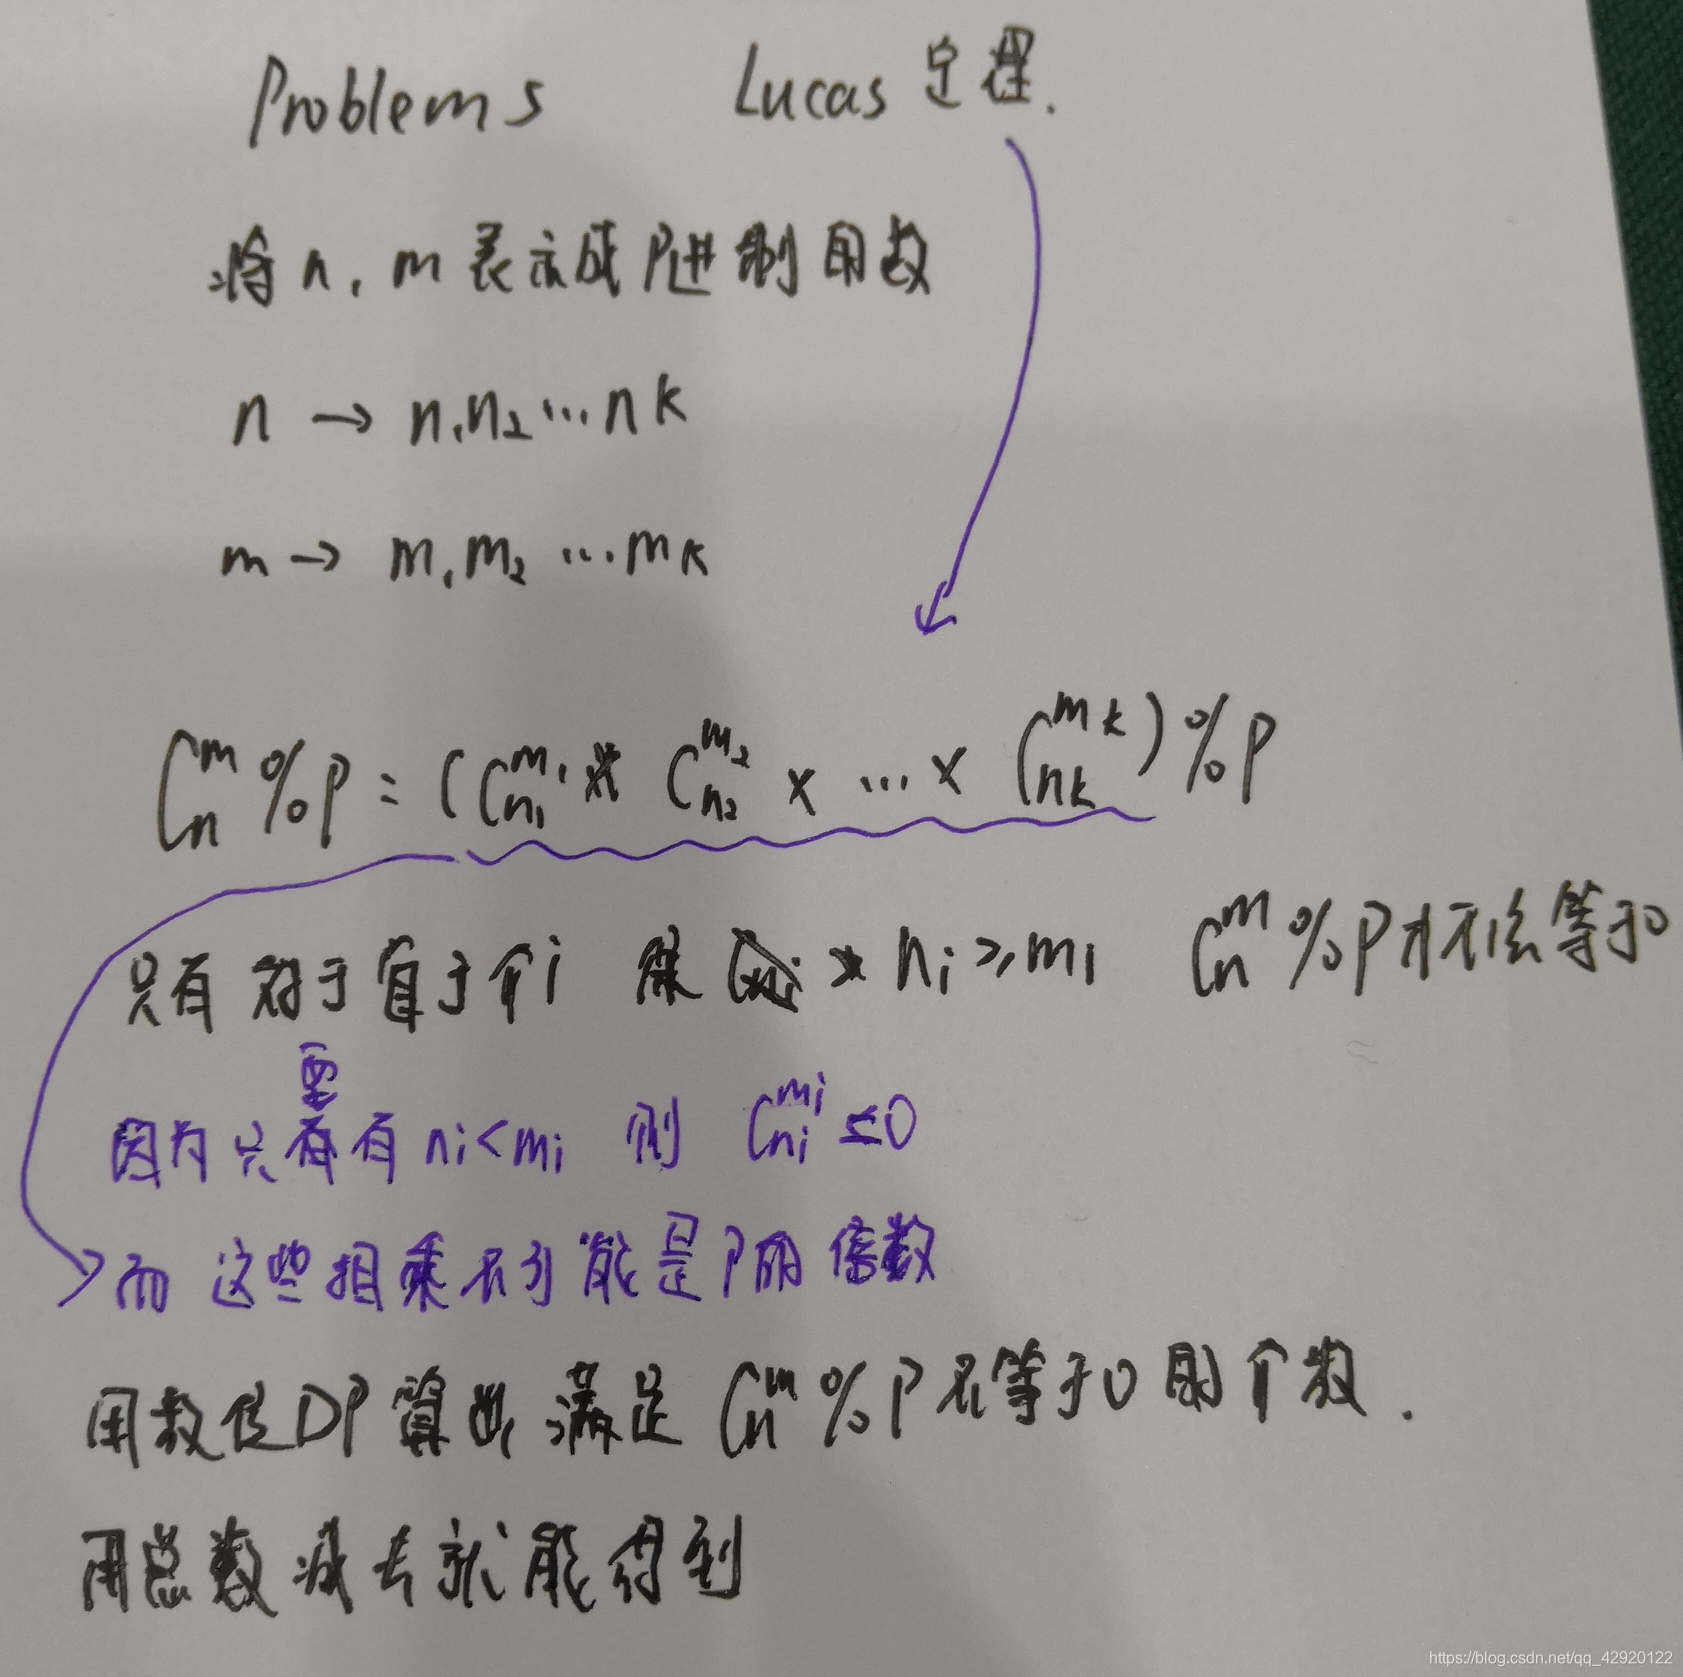 Problems Lucas定理.
将n,m表示成P进制的数
n → n₁n₂…nk
m → m₁m₂…mk
Cₙᵐ%P=(Cₙ₁ᵐ¹ × Cₙ₂ᵐ² × … × Cₙₖᵐᵏ)%P
只有对于每个i nᵢ≥mᵢ Cₙᵐ%P才不会等于0
因为只要有nᵢ<mᵢ 则 Cₙᵢᵐⁱ=0
而这些相乘不可能是P的倍数
用数位DP算出满足Cₙᵐ%P不等于0的个数.
用总数减去就能得到
https://blog.csdn.net/qq_42920122